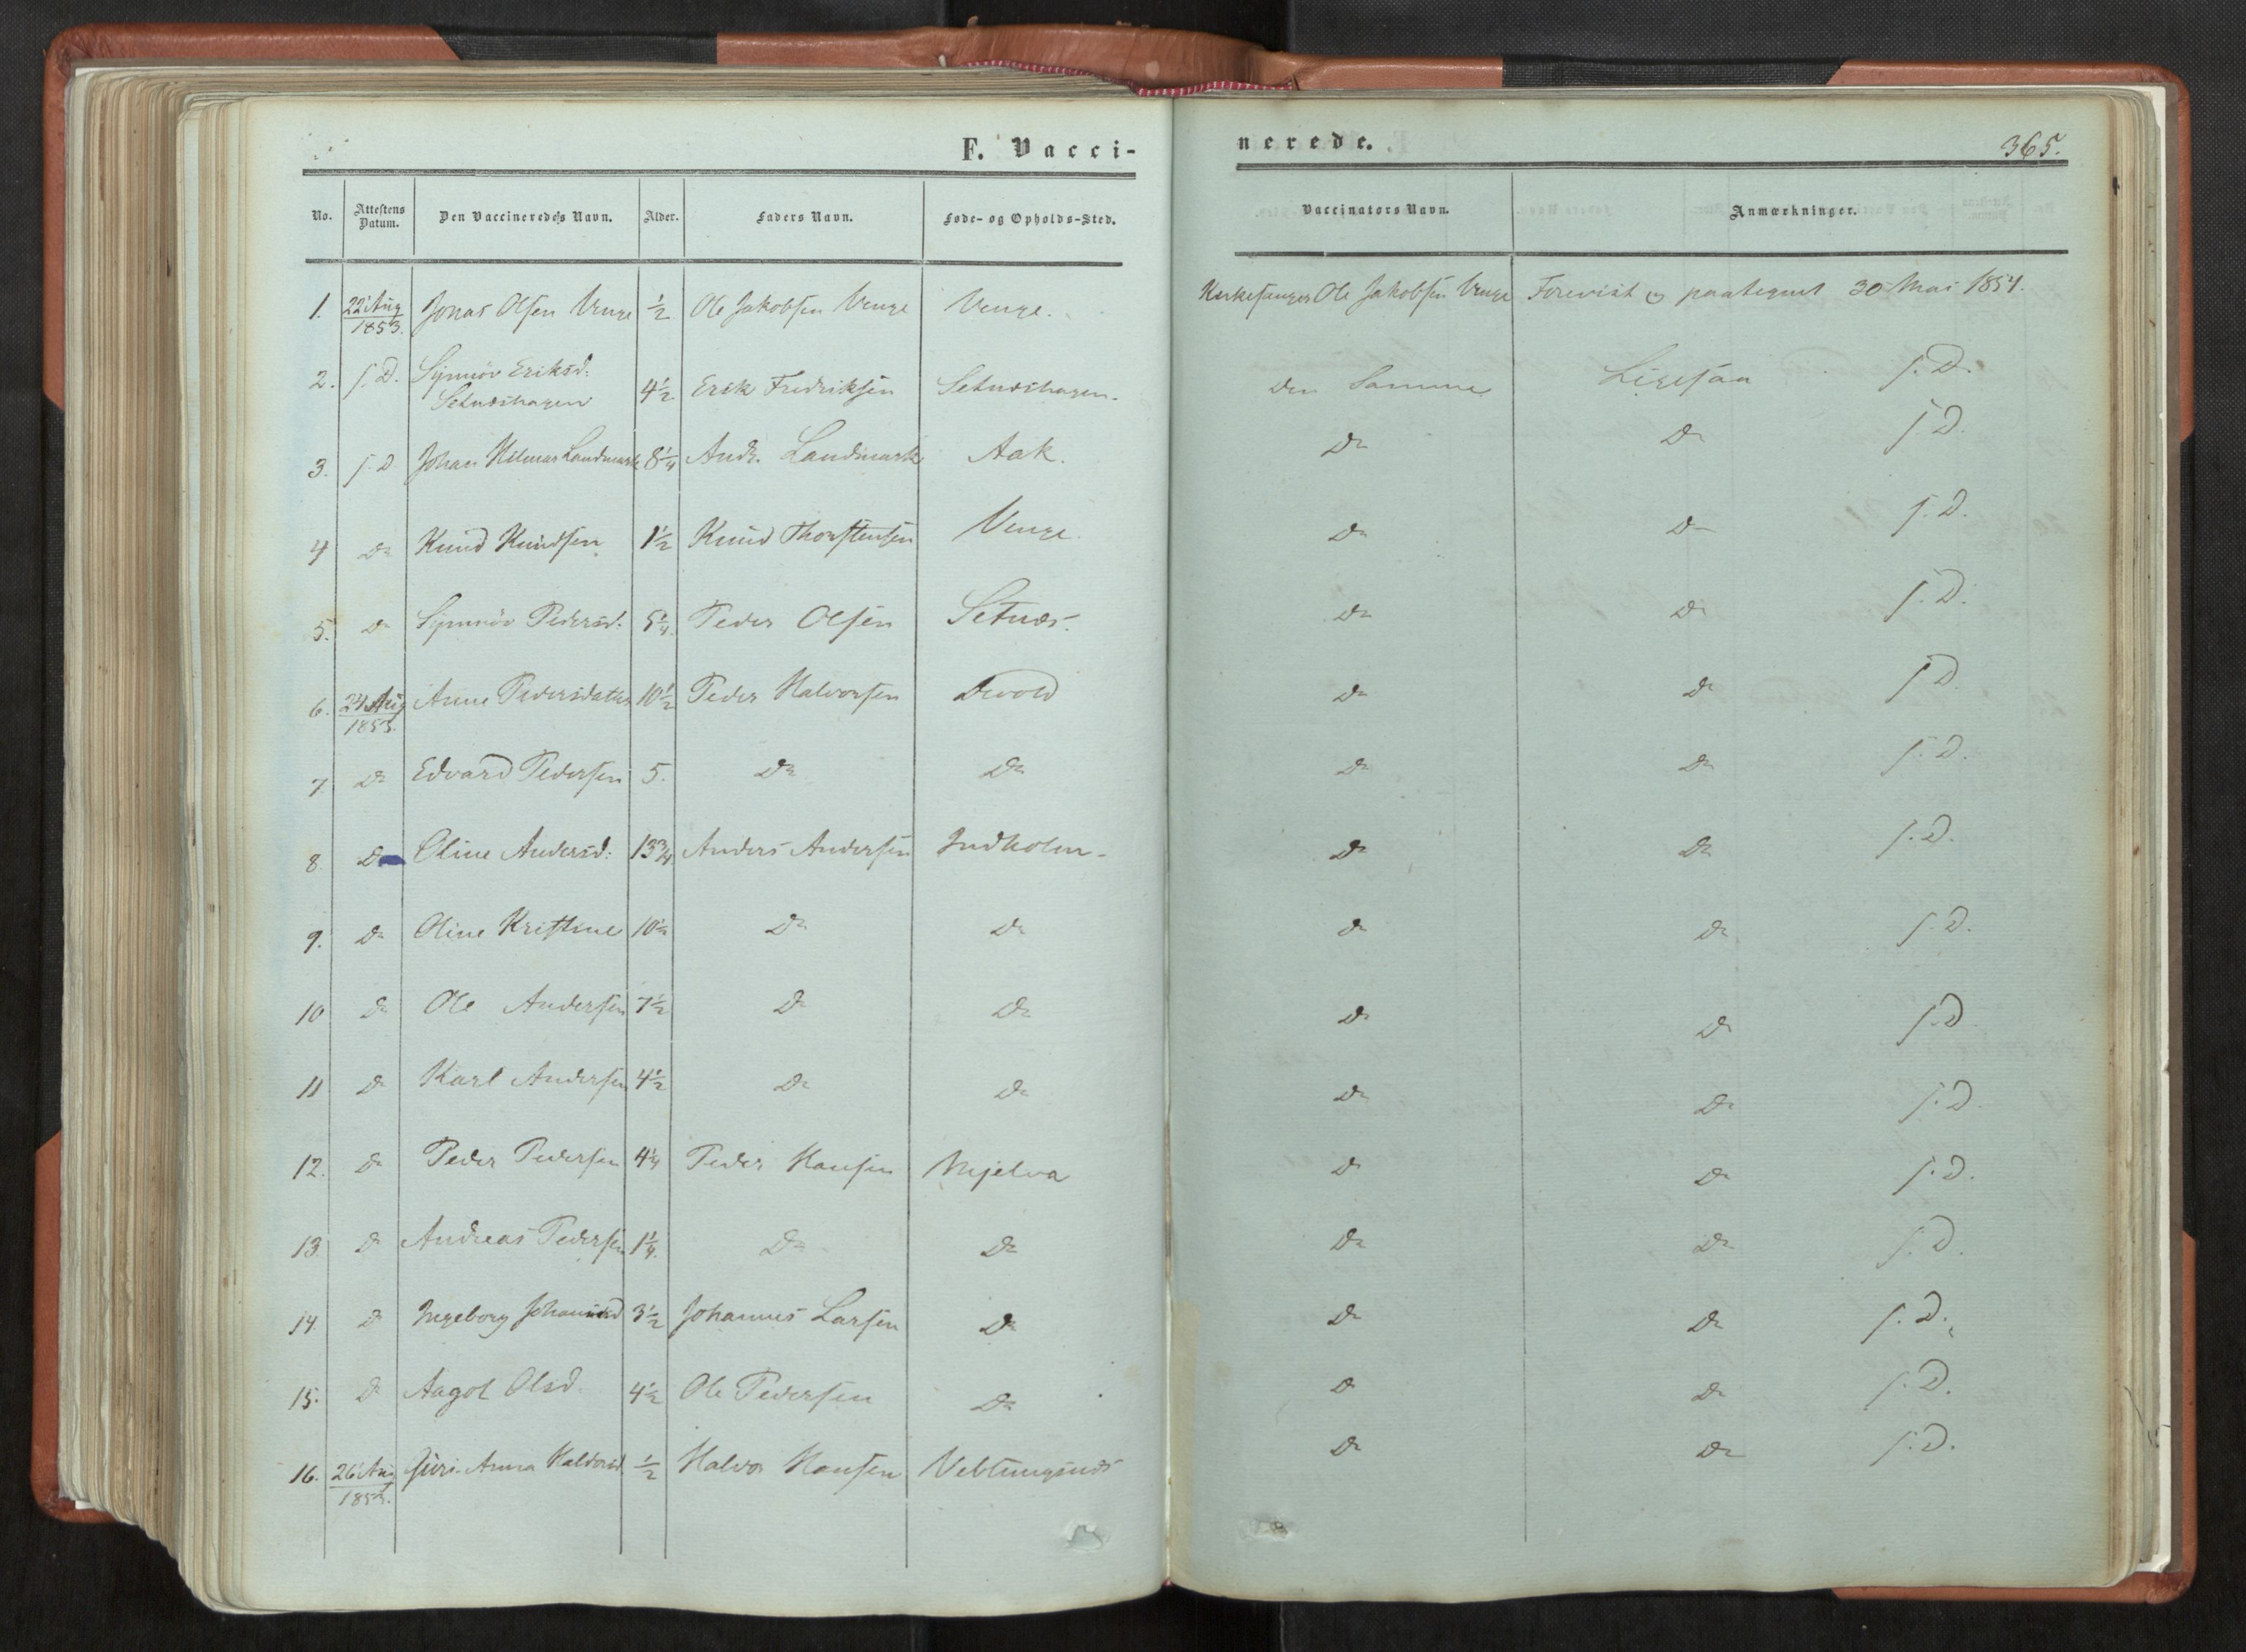 F. Vacci-
nerede.
365.
No. Attestens Datum. Den Vaccineredes Navn. Alder. Faders Navn. Føde- og Opholds-Sted. Vaccinators Navn. Anmærkninger.
1. 22 Aug 1853. Jonas Olsen Venge ½ Ole Jakobsen Venge Venge. Kirkesanger Ole Jakobsen Venge Forevist og paategnet 30 Mai 1854.
2. s. D. Synnöv Eriksd: Setnæshagen 4½ Erik Fredriksen Setnæshagen. Den Samme Ligesaa s. D.
3. s. D Johan Hilmar Landmark 8¼ Andr. Landmark Aak. Do Do s D.
4 Do Knud Knudsen 1½ Knud Thorstensen Venge. Do Do s. D.
5. Do Synnöv Pedersd: 5¼. Peder Olsen Setnæs. Do Do s. D.
6. 24 Aug 1853. Anne Pedersdatter 10½ Peder Halvorsen Devold Do Do s D
7 Do Edvard Pedersen 5. Do Do Do Do s. D.
8. Do Oline Andersd: 13¾ Anders Andersen Indholm Do Do s. D.
9. Do Oline Kristine 10½ Do Do Do Do s. D.
10 Do Ole Andersen 7½ Do Do Do Do s. D
11 Do Karl Andersen 4½ Do Do Do Do s. D
12. Do Peder Pedersen 4¼ Peder Hansen Mjelva Do Do s. D.
13. Do Andreas Pedersen 1¼. Do Do Do Do s. D.
14. Do Ingeborg Johannesd 3½ Johannes Larsen Do Do Do s. D.
15. Do Aagot Olsd. 4½ Ole Pedersen Do Do Do s. D.
16. 26 Aug 1853. Guri Anna Halvorsd ½ Halvor Hansen Veblungsnæs Do Do s. D.